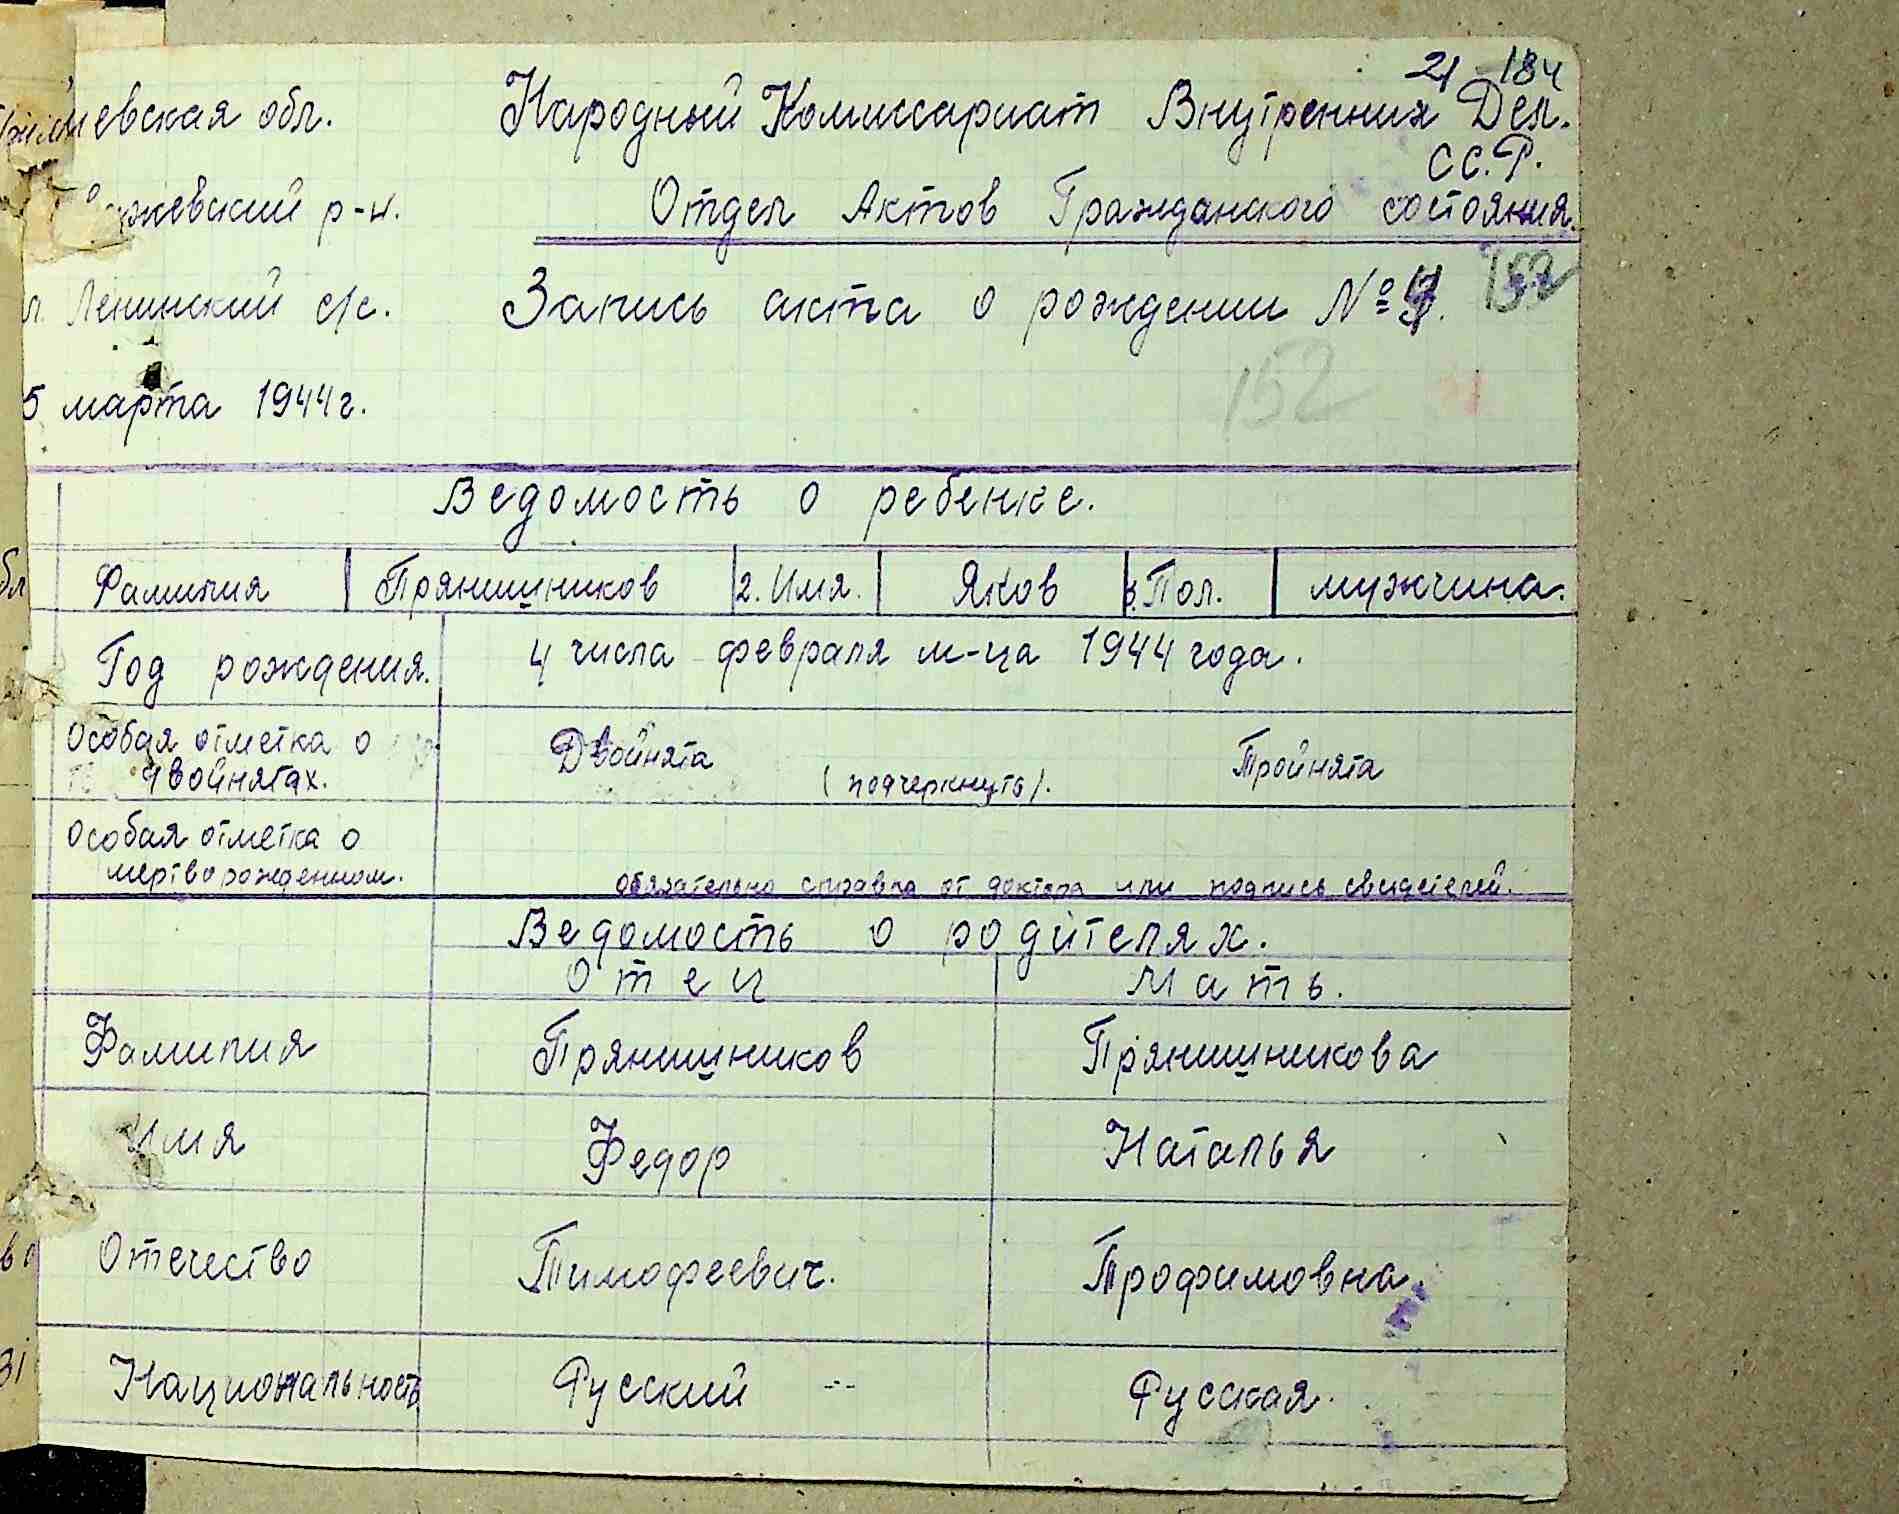 21 184
евская обл. Народный Комиссариат Внутренних Дел.
СС.Р.
жевский р-н. Отдел Актов Гражданского состояния.
Ленинский с/с. Запись акта о рождении № 152
152
5 марта 1944г.
Ведомость о ребенке.
Фамилия Прянишников 2. Имя. Яков 3. Пол. мужчина.
Год рождения. 4 числа февраля м-ца 1944 года.
Особая отметка о двойнятах. Двойнята (подчеркнуть). Тройнята
Особая отметка о
мертворожденном. обязательно справка от доктора или подпись свидетелей.
Ведомость о родителях.
Отец Мать.
Фамилия Прянишников Прянишникова
Имя Федор Наталья
Отечество Тимофеевич. Трофимовна.
Национальность Русский Русская.